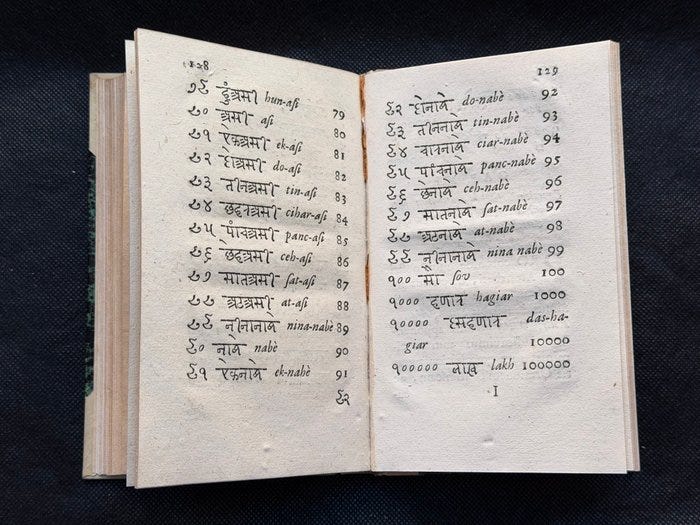 128
७९ हुंअसी hun-aſi 79
८० असी aſi 80
८१ ऐकअसी ek-aſi 81
८२ दोअसी do-aſi 82
८३ तीनअसी tin-aſi 83
८४ छहरअसी cihar-aſi 84
८५ पांचअसी panc-aſi 85
८६ छहअसी ceh-aſi 86
८७ सातअसी ſat-aſi 87
८८ अठअसी at-aſi 88
८९ नीनानावे nina-nabè 89
९० नावे nabè 90
९१ ऐकनावे ek-nabè 91
९२
129
९२ दोनावे do-nabè 92
९३ तीननावे tin-nabè 93
९४ चारनावे ciar-nabè 94
९५ पांचनावे panc-nabè 95
९६ छनावे ceh-nabè 96
९७ सातनावे ſat-nabè 97
९८ अठनावे at-nabè 98
९९ नीनानावे nina nabè 99
१०० सो ſou 100
१००० हजार hagiar 1000
१०००० दसहजार das-ha-
giar 10000
१००००० लाख lakh 100000
I